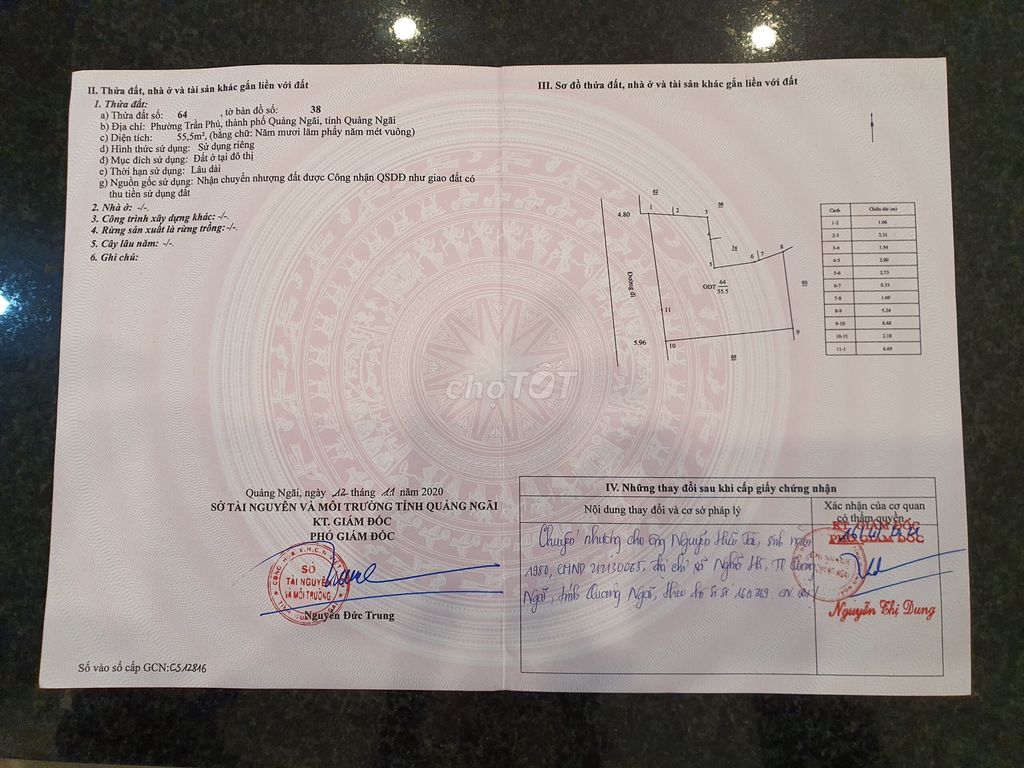 II. Thửa đất, nhà ở và tài sản khác gắn liền với đất
1. Thửa đất:
a) Thửa đất số: 64 , tờ bản đồ số: 38
b) Địa chỉ: Phường Trần Phú, thành phố Quảng Ngãi, tỉnh Quảng Ngãi
c) Diện tích: 55,5m², (bằng chữ: Năm mươi lăm phẩy năm mét vuông)
d) Hình thức sử dụng: Sử dụng riêng
đ) Mục đích sử dụng: Đất ở tại đô thị
e) Thời hạn sử dụng: Lâu dài
g) Nguồn gốc sử dụng: Nhận chuyển nhượng đất được Công nhận QSDĐ như giao đất có
thu tiền sử dụng đất
2. Nhà ở: -/-.
3. Công trình xây dựng khác: -/-.
4. Rừng sản xuất là rừng trồng:-/-.
5. Cây lâu năm: -/-.
6. Ghi chú:
Quảng Ngãi, ngày 12 tháng 11 năm 2020
SỞ TÀI NGUYÊN VÀ MÔI TRƯỜNG TỈNH QUẢNG NGÃI
KT. GIÁM ĐỐC
PHÓ GIÁM ĐỐC
SỞ
TÀI NGUYÊN
VÀ MÔI TRƯỜNG
Nguyễn Đức Trung
Số vào sổ cấp GCN:CS12816
III. Sơ đồ thửa đất, nhà ở và tài sản khác gắn liền với đất
4.80
1
2
3
5
6
7
8
74
ODT 64
55.5
Đường đi
11
5.96
10
9
Cạnh Chiều dài (m)
1-2 1.66
2-3 2.31
3-4 1.54
4-5 2.00
5-6 2.73
6-7 0.33
7-8 1.69
8-9 5.24
9-10 8.68
10-11 2.18
11-1 6.69
chợTỐT
IV. Những thay đổi sau khi cấp giấy chứng nhận
Nội dung thay đổi và cơ sở pháp lý
Xác nhận của cơ quan
có thẩm quyền
KT. GIÁM ĐỐC
PHÓ GIÁM ĐỐC
Chuyển nhượng cho ông Nguyễn Hữu sinh năm
1980, CMND 212130065, địa chỉ xã Nghĩa TP Quảng
Ngãi, tỉnh Quảng Ngãi, theo hồ sơ số
Nguyễn Thị Dung